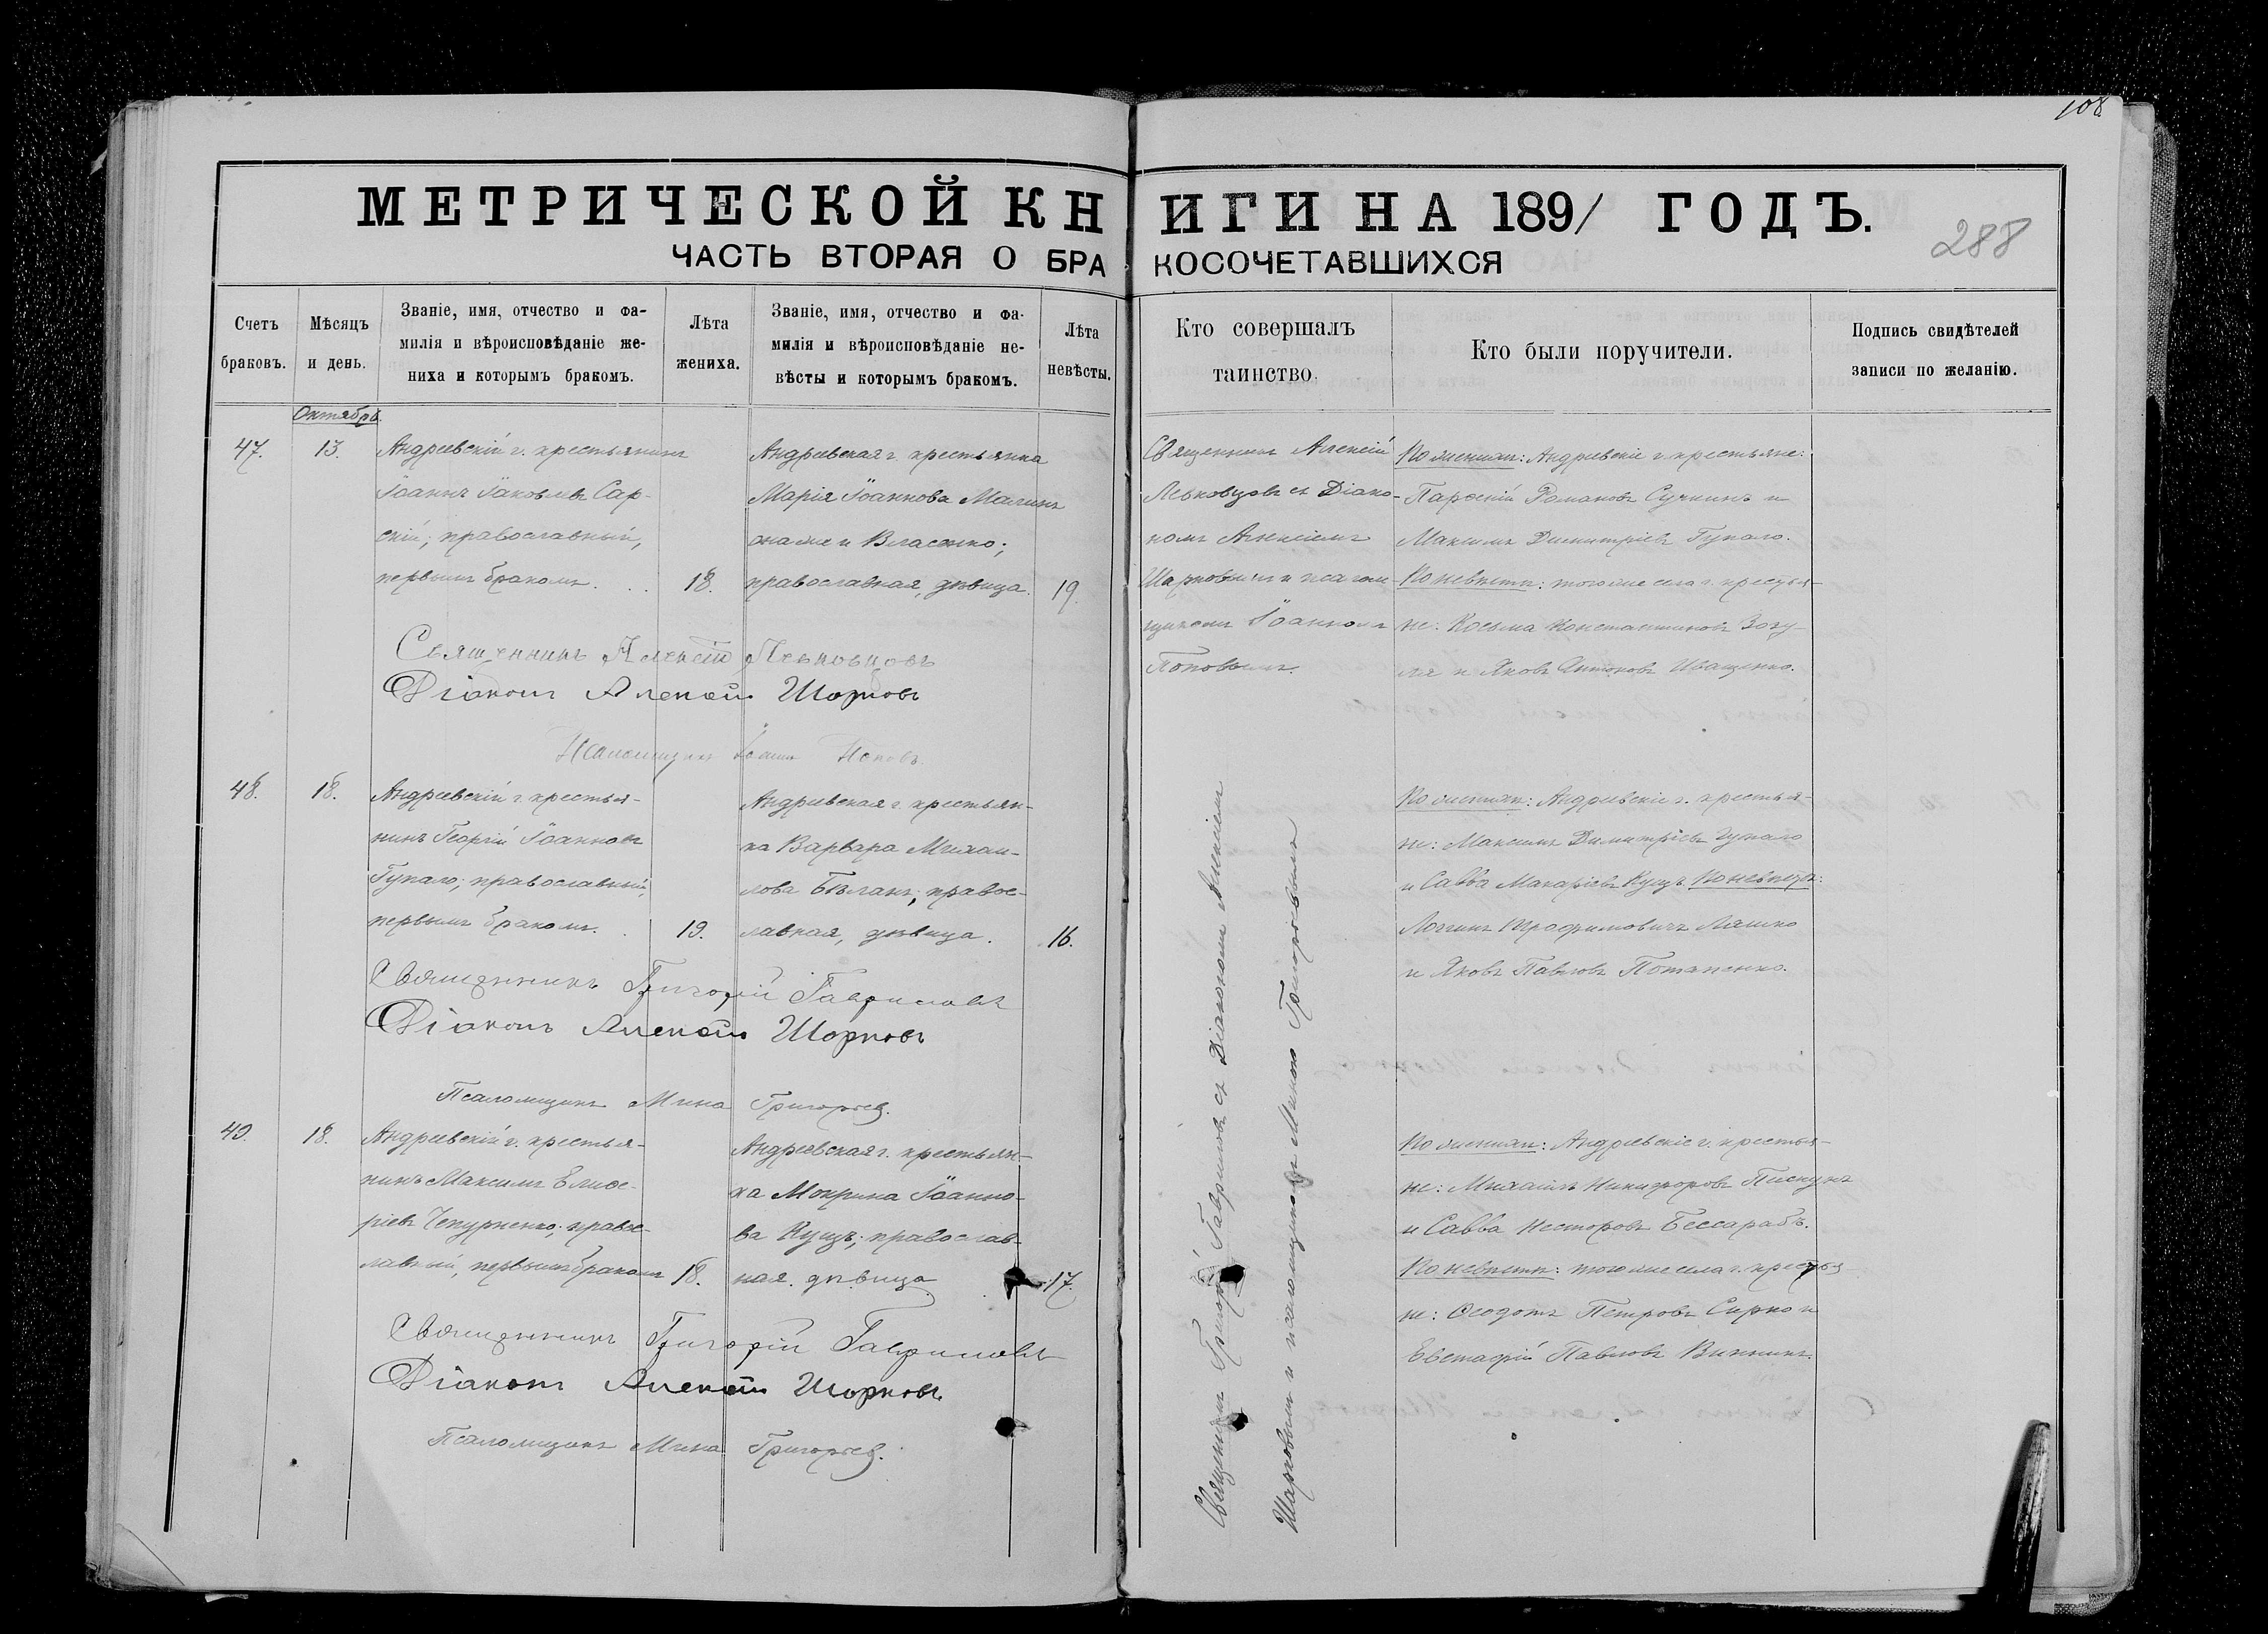 108
МЕТРИЧЕСКОЙ КНИГИ НА 1891 ГОДЪ.
288
ЧАСТЬ ВТОРАЯ О БРАКОСОЧЕТАВШИХСЯ
Счетъ браковъ.
Мѣсяцъ и день.
Званіе, имя, отчество и фа-
милія и вѣроисповѣданіе же-
ниха и которымъ бракомъ.
Лѣта жениха.
Званіе, имя, отчество и фа-
милія и вѣроисповѣданіе не-
вѣсты и которымъ бракомъ.
Лѣта невѣсты.
Кто совершалъ
таинство.
Кто были поручители.
Подпись свидѣтелей
записи по желанію.
Октябрь.
47.
13.
Андреевскій г. крестьянинъ
Іоаннъ Іаковлевъ Сар-
скій, православный,
первымъ бракомъ.
18.
Андреевская г. крестьянка
Марія Іоаннова
она же и Власенко;
православная, дѣвица.
19.
Священникъ Алексій
Левковцовъ съ Діако-
номъ Алексіемъ
Шарковымъ и псалом-
щикомъ Іоанномъ
Поповымъ.
По женихѣ: Андреевскіе г. крестьяне:
Романовъ Сучкинъ и
Максимъ Димитріевъ Гупало.
По невѣстѣ: того же села г. крестья-
не: Косьма Константиновъ Зогу-
ля и Яковъ Антоновъ Иващенко.
Священникъ Алексій Левковцовъ
Діаконъ Алексій Шорковъ
Псаломщикъ Іоаннъ Поповъ.
48.
18.
Андреевскій г. крестья-
нинъ Георгій Іоанновъ
Гупало, православный,
первымъ бракомъ.
19.
Андреевская г. крестьян-
ка Варвара Михаи-
лова Бѣланъ, правос-
лавная, дѣвица.
16.
По женихѣ: Андреевскіе г. крестья-
не: Максимъ Димитріевъ Гупало
и Савва Макаріевъ Кущъ. По невѣстѣ:
Логинъ Трофимовичъ Ляшко
и Яковъ Павловъ Потапенко.
Священникъ Григорій Гавриловъ
Діаконъ Алексій Шорковъ
Псаломщикъ Мина Григорьевъ.
49.
18.
Андреевскій г. крестья-
нинъ Максимъ Елисе-
ріевъ Чепурненко, правос-
лавный, первымъ бракомъ
18.
Андреевская г. крестьян-
ка Мокрина Іоанно-
ва Кущъ, православ-
ная, дѣвица
17.
По женихѣ: Андреевскіе г. крестья-
не: Михаилъ Никифоровъ Пискунъ
и Савва Несторовъ Бессарабъ.
По невѣстѣ: того же села г. крестья-
не: Ѳеодотъ Петровъ Сирко и
Евстафій Павловъ Винникъ.
Священникъ Григорій Гавриловъ
Діаконъ Алексій Шорковъ
Псаломщикъ Мина Григорьевъ.
Священникъ Григорій Гавриловъ съ Діакономъ Алексіемъ
Шарковымъ и псаломщикомъ Миною Григорьевымъ